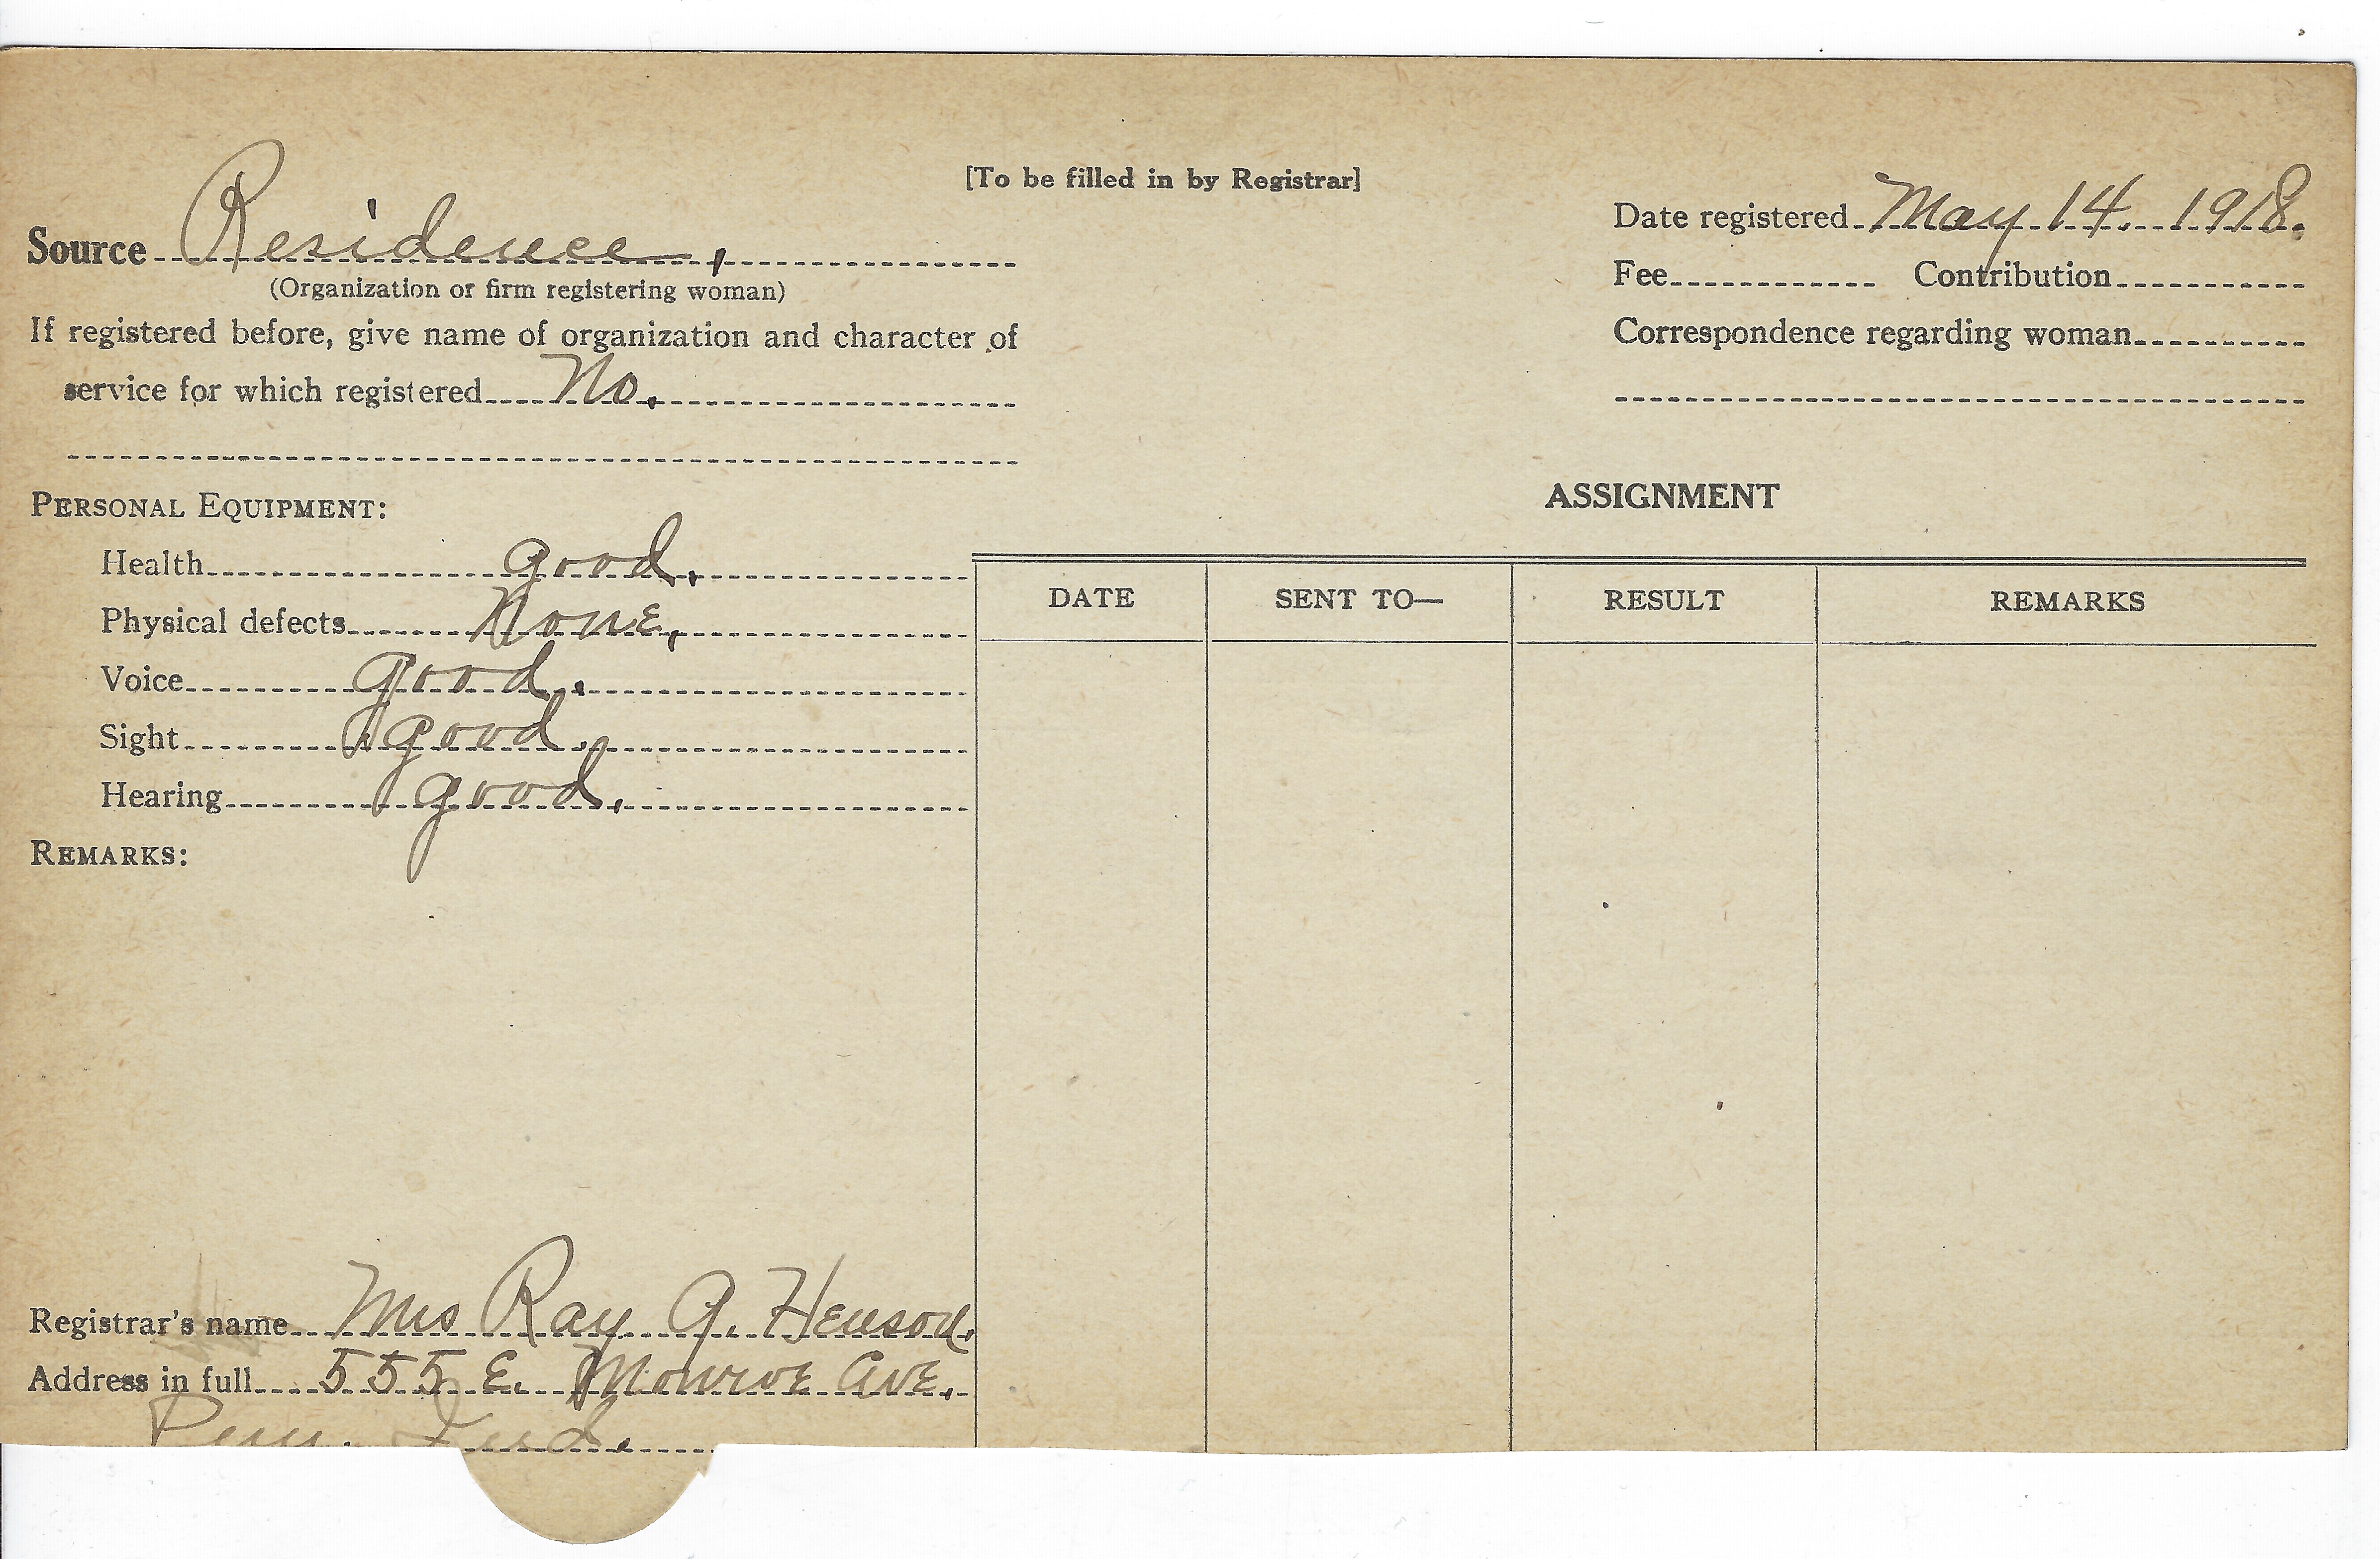 [To be filled in by Registrar]
Source Residence,
(Organization or firm registering woman)
If registered before, give name of organization and character of
service for which registered No.
Date registered May 14. 1918.
Fee Contribution
Correspondence regarding woman
PERSONAL EQUIPMENT:
Health good.
Physical defects None.
Voice good.
Sight good.
Hearing good.
REMARKS:
ASSIGNMENT
DATE SENT TO— RESULT REMARKS
Registrar's name Mrs Ray A. Henson.
Address in full 555 E. Monroe Ave.
Peru. Ind.